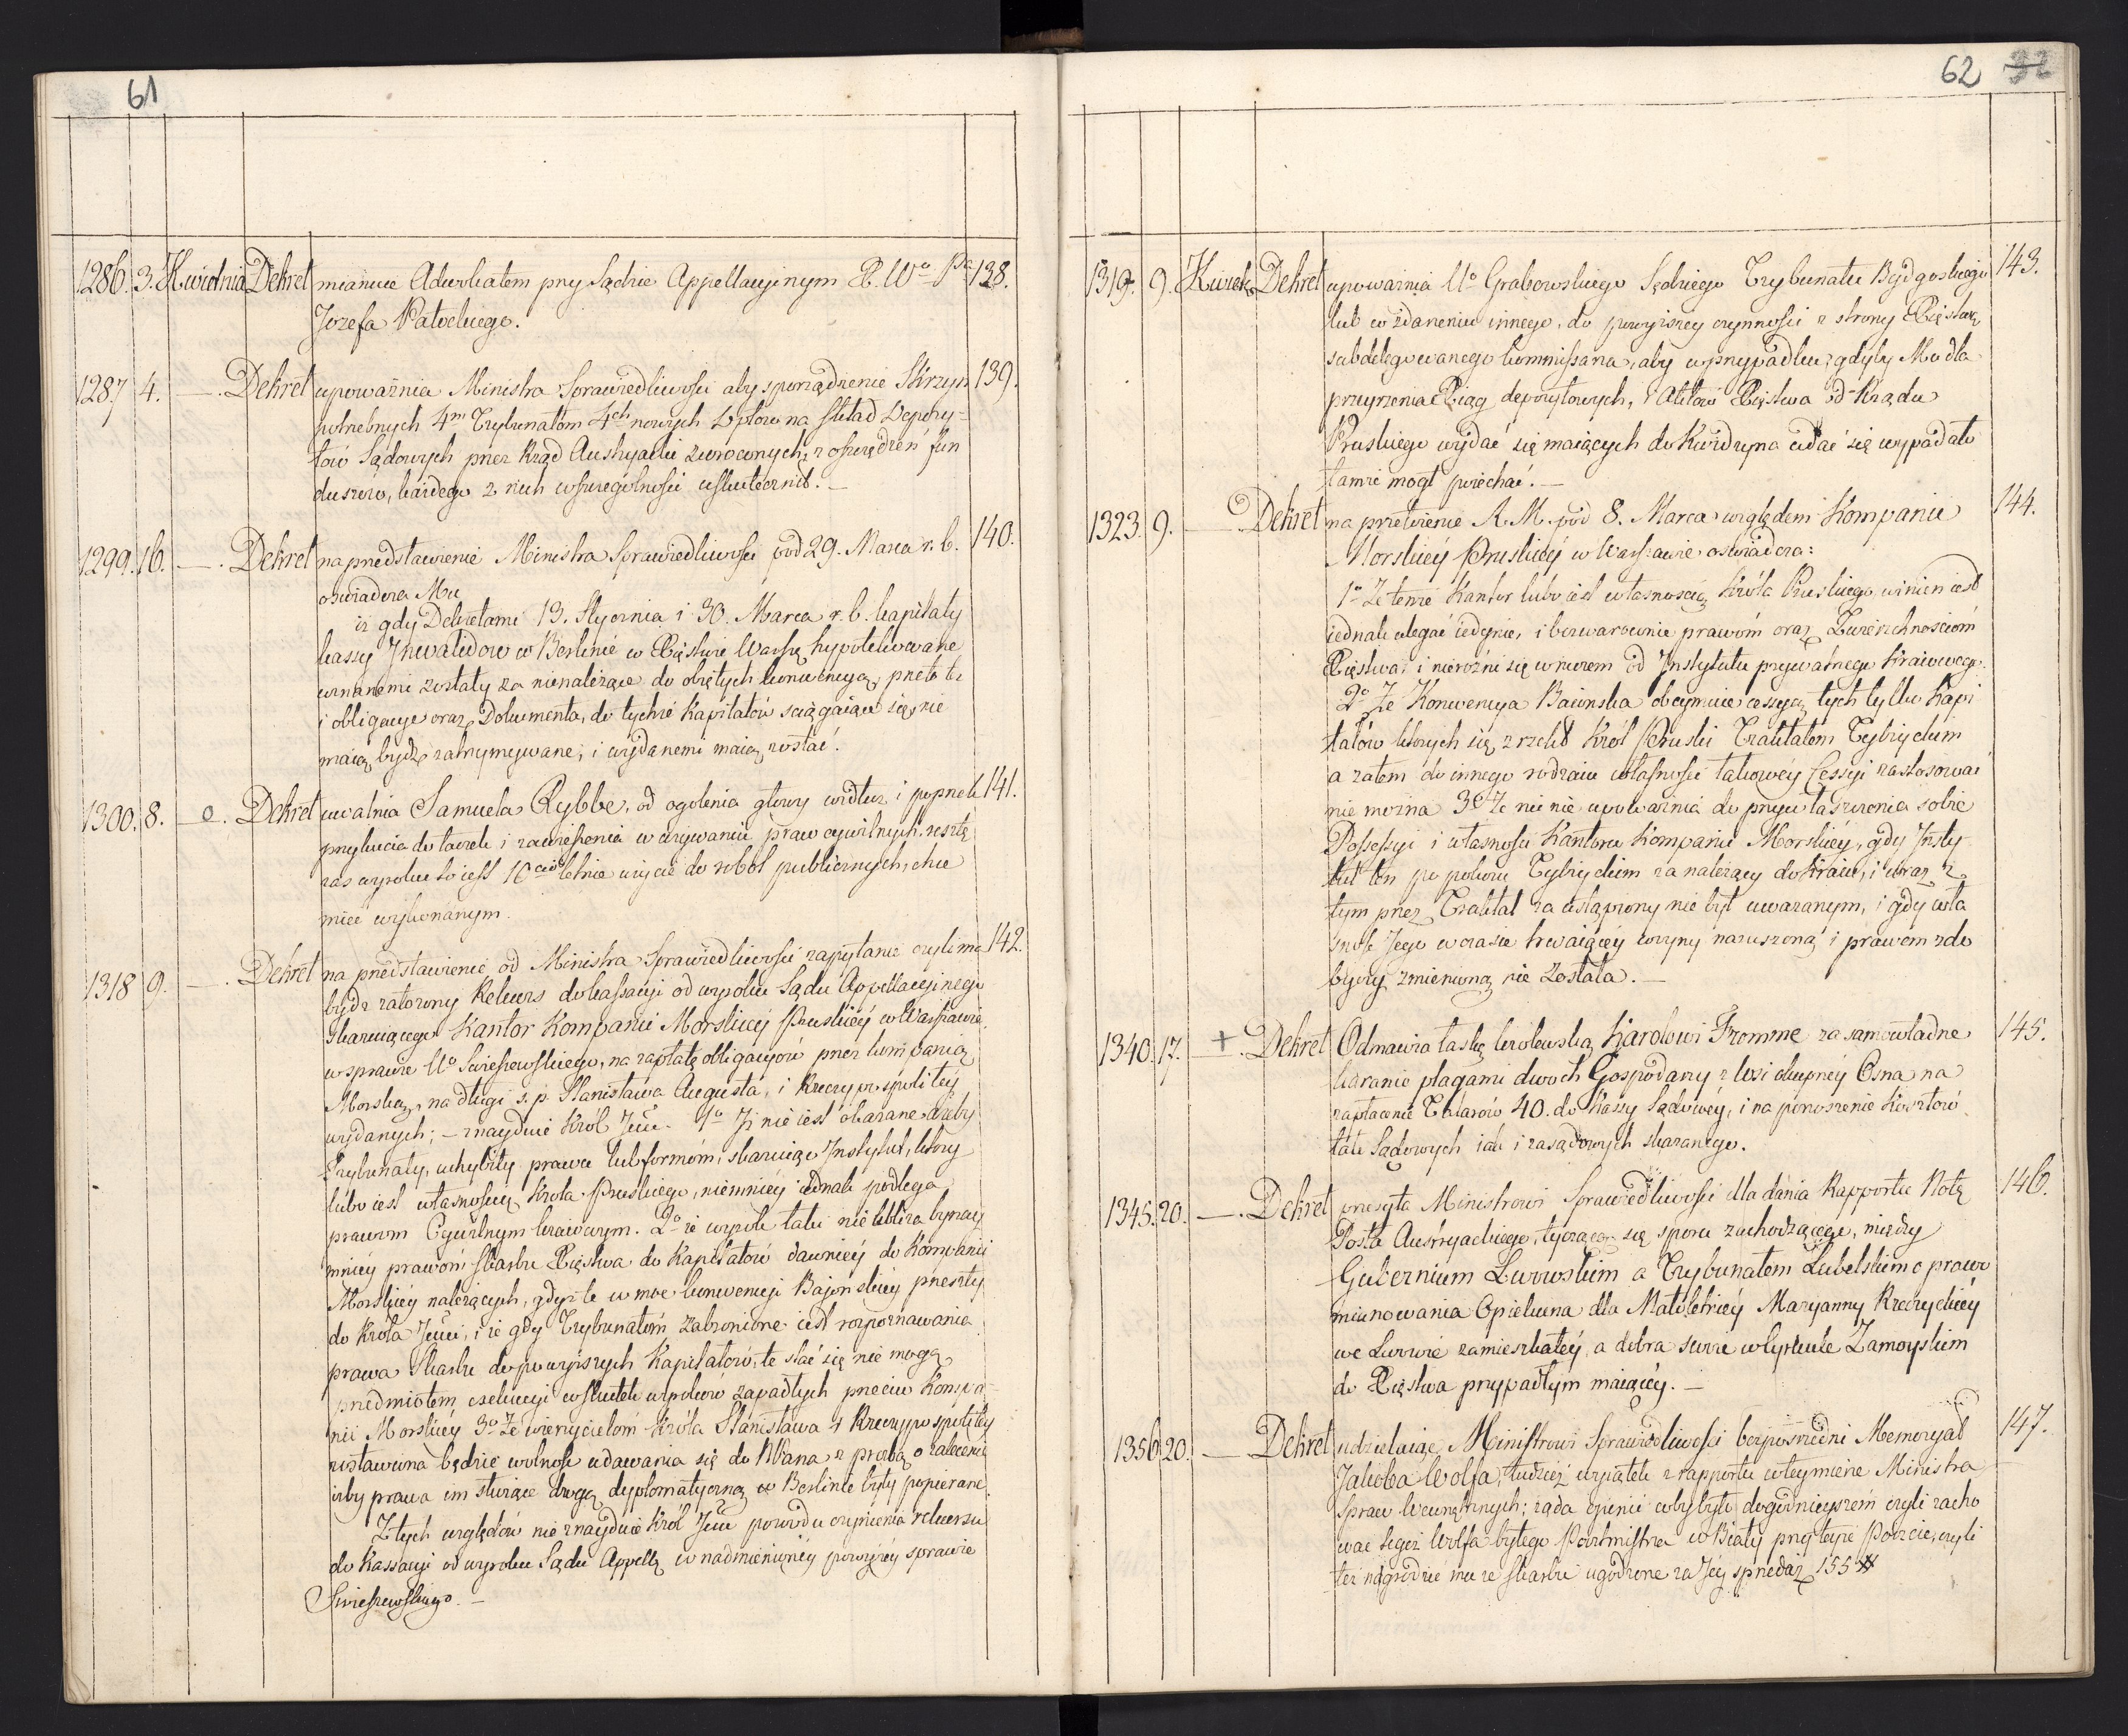 61
1286. 3. Kwietnia Dekret mianuie Adwokatem przy Sądzie Appellacyinym X. Wo Pa 138.
Jozefa Patockiego.
1287 4. —. Dekret upoważnia Ministra Sprawiedliwości aby sporządzenie Skrzyn 139.
potrzebnych 4m Trybunałom 4ch nowych Dptow na skład Depozy-
tów Sądowych przez Rząd Austryacki zwróconych, z oszczędzeń fun
duszów, każdego z nich w szczególności uskutecznił. —
1299. 16. —. Dekret na przedstawienie Ministra Sprawiedliwości pod 29. Marca r. b. 140.
oświadcza Mu
iż gdy Dekretami 13. Stycznia i 30. Marca r. b. kapitały
kassy Inwalidow w Berlinie w Xięstwie Warsz hypotekowane
uznanemi zostały za nienależące do obiętych konwencyą, przeto te
i obligacye oraz Dokumenta, do tychże Kapitałów sciągaiące się, nie
maią bydź zatrzymywane, i wydanemi maią zostać.
1300. 8. —o. Dekret uwalnia Samuela Rybbe, od ogolenia głowy wzdłuz i poprzek 141.
przykucia do taczek i zawieszenia w używaniu praw cywilnych, resztę
zas wyroku to iest 10cio letnie użycie do robót publicznych, chce
mieć wykonanym.
1318 9. —. Dekret na przedstawienie od Ministra Sprawiedliwości zapytanie czyli ma 142.
bydź założony Rekurs do kassacyi od wyroku Sądu Appellacyinego
skazuiącego Kantor Kompanii Morskiey Pruskiey w Warszawie
w sprawie Uo Swieszewskiego, na zapłatę obligacyów przez kompanią
Morską, na długi s. p. Stanisława Augusta, i Rzeczypospolitey
wydanych; — znayduie Król Jmć. 1o Iż nie iest okazane ażeby
Trybunały, uchybiły prawu lub formom, skazuiąc Instytut, ktory
lubo iest własnością Krola Pruskiego, niemniey iednak podlega
prawom Cywilnym kraiowym. 2o że wyrok taki nie ubliża bynay
mniey prawom skarbu Xięstwa do Kapitałów dawniey do Kompanii
Morskiey należących, gdyż te w moc konwencyi Bajonskiey przeszły
do Króla Jmci, i że gdy Trybunałom zabronione iest rozpoznawania
prawa Skarbu do powyższych Kapitałów, te stać się nie mogą
przedmiotem exekucyi w skutek wyroków zapadłych przeciw Kompa-
nii Morskiey 3o Ze wierzycielom Króla Stanisława i Rzeczypospolitey
zostawiona będzie wolność udawania się do WPana z prozbą o zalecenie
iżby prawa im służące drogą dyplomatyczną w Berlinie były popierane.
Z tych względów nie znayduie Król Jmć powodu czynienia rekursu
do Kassacyi od wyroku Sądu Appellą w nadmienioney powyżey sprawie
Swieszewskiego. —
62 32
1319. 9. Kwiet. Dekret upoważnia Uo Grabowskiego Sędziego Trybunału Bydgoskiego 143.
lub w zdarzeniu innego, do powyższey czynności z strony Xięstwa
subdelegowanego kommissarza, aby w przypadku, gdyby Mu dla
przeyrzenia Xiąg depozytowych, i Aktów Xięstwa od Rządu
Pruskiego wydać się maiących do Kwidzyna udać się wypadało
tamże mogł poiechać. —
1323. 9. —. Dekret na przełożenie R. M. pod 8. Marca względem Kompanii 144.
Morskiey Pruskiey w Warszawie oswiadcza:
1o Ze tenże Kantor lubo iest własnością Króla Pruskiego, winien iest
iednak ulegać iedynie, i bezwarownie prawom oraz Zwierzchnościom
Xięstwa, i nieróżni się w niczem od Instytutu prywatnego kraiowego.
2o Ze Konwencya Baiońska obeymuie cessyą tych tylko Kapi
tałów których się zrzekł Król Pruski Traktatem Tylzyckim
a zatem do innego rodzaiu własności takowey Cessyi zastosować
nie można 3o Ze nic nie upoważnia do przywłaszczenia sobie
Possessyi i własności Kantoru Kompanii Morskiey, gdy Insty
tut ten po pokoiu Tylzyckim za należący do kraiu, i wraz z
tym przez Traktat za ustąpiony nie był uważanym, i gdy wła
sność Jego w czasie trwaiącey woyny naruszoną i prawem zdo
byczy zmienioną nie została. —
1340. 17. +. Dekret Odmawia łaskę krolewską Karolowi Fromme za samowładne 145.
karanie plagami dwoch Gospodarzy z wsi okupney Osna na
zapłacenie Talarów 40. do Kassy Sądowey, i na ponoszenie Kosztów
tak Sądowych iak i zasądowych skazanego.
1345. 20. —. Dekret przesyła Ministrowi Sprawiedliwości dla dania Rapportu Notę 146.
Posła Austryackiego, tyczącą się sporu zachodzącego, między
Gubernium Lwowskim a Trybunałem Lubelskim o prawo
mianowania Opiekuna dla Małoletniey Maryanny Rzeczyckiey
we Lwowie zamieszkałey, a dobra swoie w Cyrkule Zamoyskim
do Xięstwa przypadłym maiącey. —
1356 20. — Dekret udzielaiąc Ministrowi Sprawiedliwości bezpośredni Memoryał 147.
Jakoba Wolfa, tudzież wyiątek z rapportu w teymierze Ministra
Spraw Wewnętrznych; żąda opinii coby było dogodnieyszem czyli zacho
wać tegoż Wolfa byłego Poczmistrza w Biały przy teyże Poczcie, czyli
też nagrodzić mu ze skarbu ugodzone za Jey sprzedaż 155 #